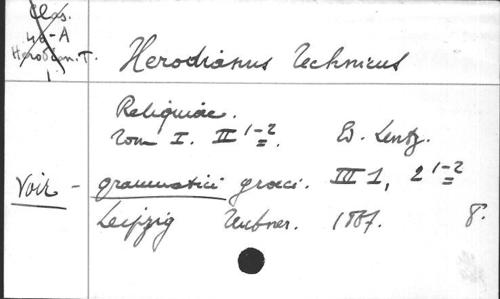 Clas.
40-A
Herodian. T.
1.
Herodianus Technicus
Reliquiae.
Tom I. II 1-2. Ed. Lentz.
Voir - grammatici graeci. III 1, 2 1-2
Leipzig Teubner. 1887. 8.